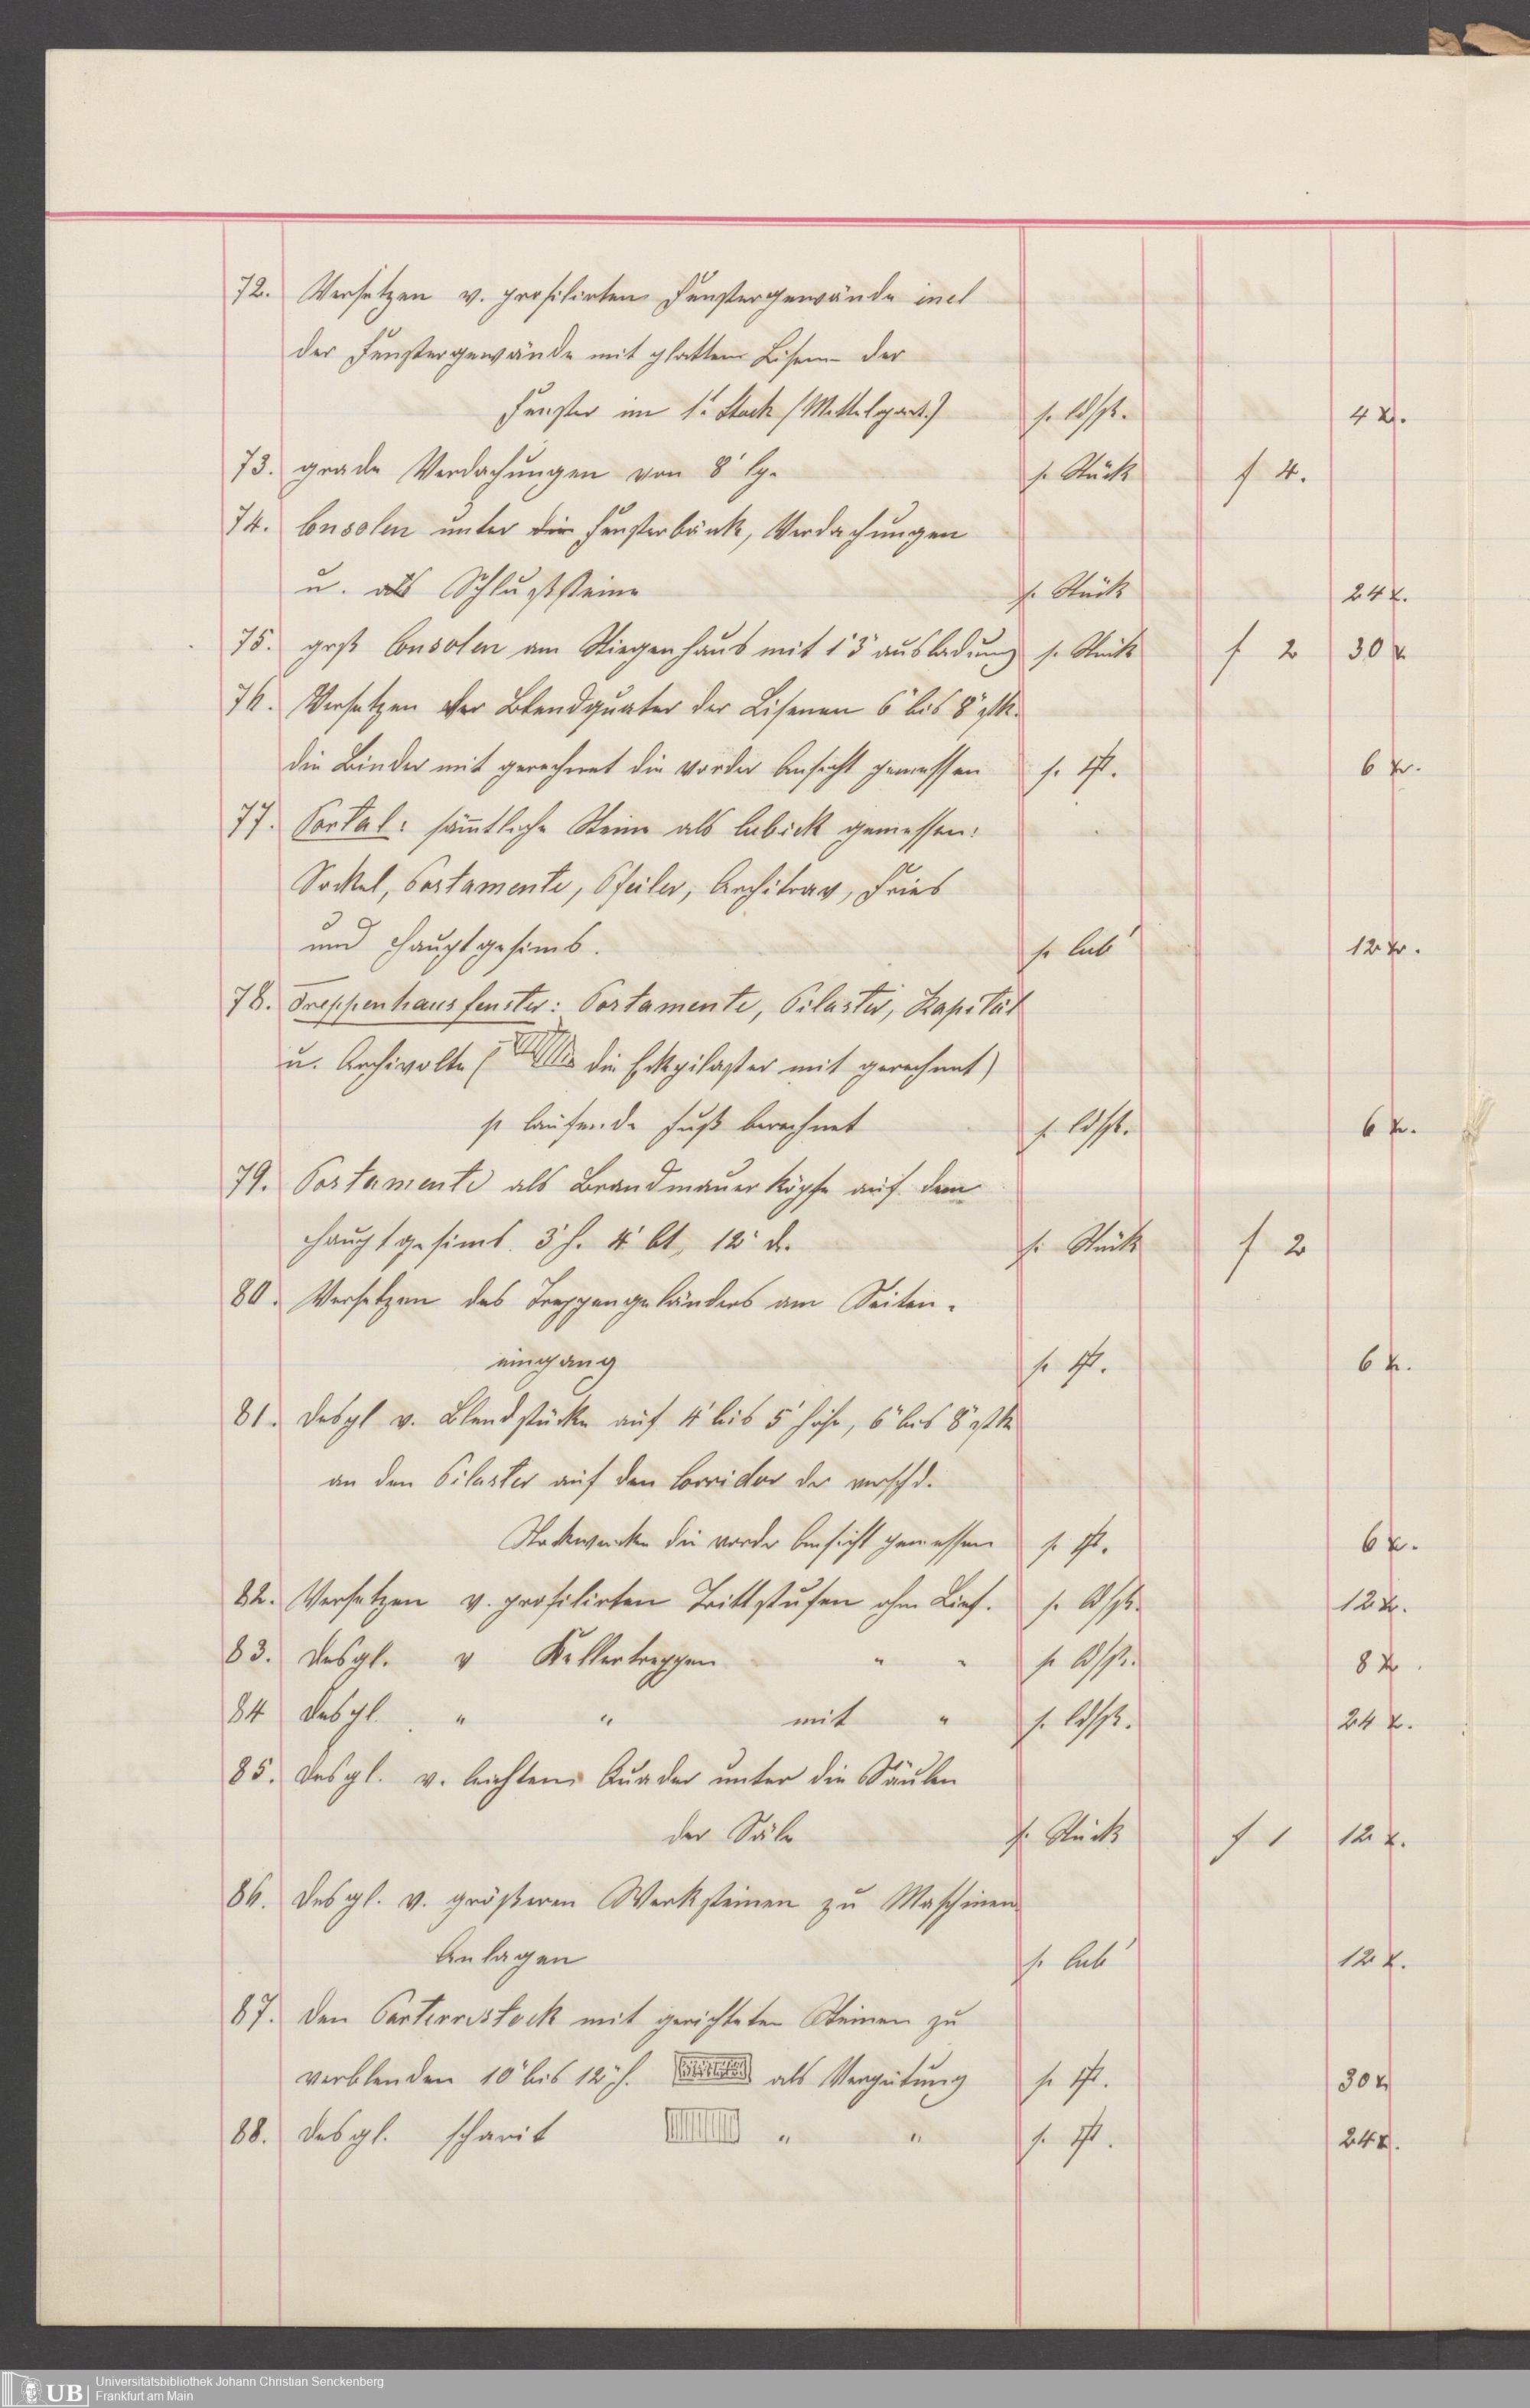 72. Versetzen v. profilirten Fenstergewände incl
der Fenstergewände mit glatten Lisenen der
Fenster im 1t. Stock (Mittelpart.) p. ldfß. 4 x.
73. grade Verdachungen von 8' lg. p. Stück f 4.
74. Consolen unter die Fensterbänk, Verdachungen
u. als Schlußsteine p. Stück 24 x.
75. groß Consolen am Stiegenhaus mit 1'3" ausladung p. Stück f 2 30 x
76. Versetzen der Blendquater der Lisenen 6" bis 8" stk.
die Binder mit gerechnet die vorder Ansicht gemessen p. □ft. 6 x.
77. Portal: sämtliche Steine als Cubick gemessen:
Sockel, Postamente, Pfeiler, Architrav, Fries
und Hauptgesims. p. Cub' 12 x.
78. Treppenhausfenster: Postamente, Pilaster, Kapitäl
u. Archivolte ( die Eckpilaster mit gerechnet)
p laufende Fuß berechnet p. ldfß. 6 x.
79. Postamente als Brandmauerköpfe auf dem
Hauptgesims. 3' h. 4' bt, 12" d. p. Stück f 2
80. Versetzen des Treppengeländers am Seiten-
eingang p. □ft. 6 x.
81. desgl v. Blendstücke auf 4' bis 5' höhe, 6" bis 8" stk
an den Pilaster auf den Corridor der verschd.
Stockwerke die vorder Ansicht gemessen p. □ft. 6 x.
82. Versetzen v. profilirten Trittstufen ohne Lief. p. ldfß. 12 x.
83. desgl. v Kellertreppen " " p. ldfß. 8 x.
84 desgl. " " mit " p. ldfß. 24 x.
85. desgl. v. leichten Quader unter die Säulen
der Säle p. Stück f 1 12 x.
86. desgl. v. größeren Werksteinen zu Maschinen
Anlagen p. Cub' 12 x.
87. den Parterrestock mit gerichteten Steinen zu
verblenden 10" bis 12" h. als Vergütung p. □ft. 30 x
88. desgl. scharit " " p. □ft. 24 x.
UB
Universitätsbibliothek Johann Christian Senckenberg
Frankfurt am Main